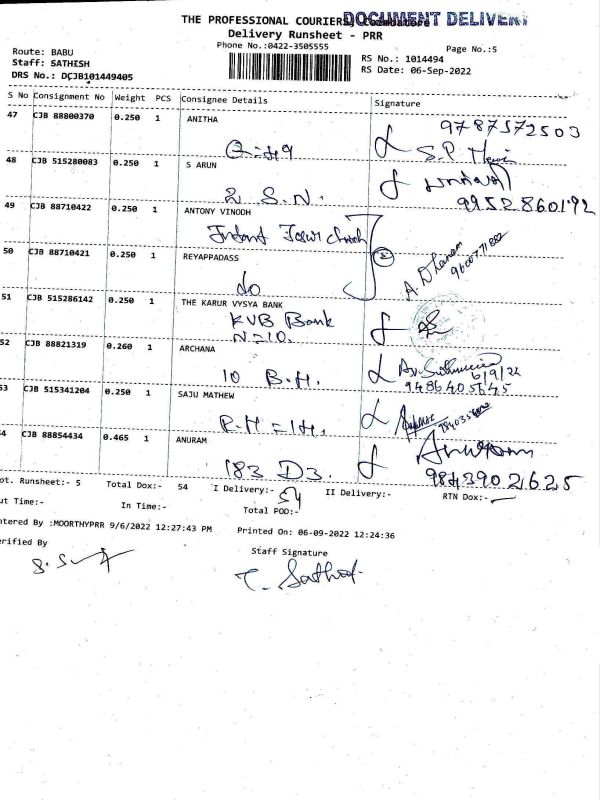 THE PROFESSIONAL COURIERS, Coimbatore
DOCUMENT DELIVERY
Delivery Runsheet - PRR
Phone No.:0422-3505555
Page No.:5
Route: BABU
Staff: SATHISH
DRS No.: DCJB101449405
RS No.: 1014494
RS Date: 06-Sep-2022
S No Consignment No Weight PCS Consignee Details Signature
47 CJB 88800370 0.250 1 ANITHA
9787372503
48 CJB 515280083 0.250 1 S ARUN
2 S.N.
9952860192
49 CJB 88710422 0.250 1 ANTONY VINODH
50 CJB 88710421 0.250 1 REYAPPADASS
do
A. Dhanam
51 CJB 515286142 0.250 1 THE KARUR VYSYA BANK
KVB Bank
52 CJB 88821319 0.260 1 ARCHANA
10 B.H.
6/9/22
9486405645
53 CJB 515341204 0.250 1 SAJU MATHEW
54 CJB 88854434 0.465 1 ANURAM
183 D3.
9843902625
ot. Runsheet:- 5 Total Dox:- 54 I Delivery:- 54 II Delivery:- RTN Dox:-
ut Time:- In Time:- Total POD:-
ntered By :MOORTHYPRR 9/6/2022 12:27:43 PM Printed On: 06-09-2022 12:24:36
erified By Staff Signature